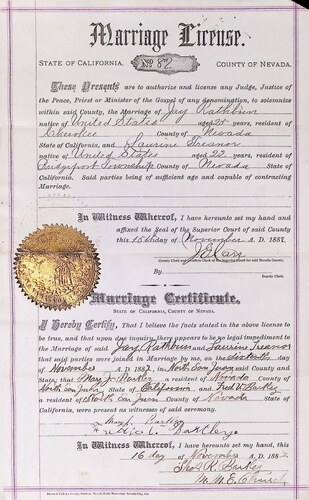 Marriage License.
STATE OF CALIFORNIA, No. 82 COUNTY OF NEVADA.
These Presents are to authorize and license any Judge, Justice of
the Peace, Priest or Minister of the Gospel of any denomination, to solemnize
within said County, the Marriage of Jay Rathbun
native of United States aged 25 years, resident of
Cherokee County of Nevada
State of California, and Laurine Treanor
native of United States aged 22 years, resident of
Bridgeport Township County of Nevada State of
California. Said parties being of sufficient age and capable of contracting
Marriage.
In Witness Whereof, I have hereunto set my hand and
affixed the Seal of the Superior Court of said County
this 15th day of November A. D. 1887
County Clerk and Clerk of the Superior Court for said Nevada County.
By
Deputy Clerk.
Marriage Certificate.
STATE OF CALIFORNIA, COUNTY OF NEVADA.
I Hereby Certify, That I believe the facts stated in the above license to
be true, and that upon due inquiry, there appears to be no legal impediment to
the Marriage of said Jay Rathbun and Laurine Treanor
that said parties were joined in Marriage by me, on the Sixteenth day
of November A. D. 1887, in North San Juan said County and
State; that Mary J. Bartley a resident of Nevada County of
North San Juan State of California and Fred W Bartley
a resident of North San Juan County of Nevada State of
were present as witnesses of said ceremony.
Mary J. Bartley
Bartley
In Witness Whereof, I have hereunto set my hand, this
16 day of November A. D. 1887
M. E. Church